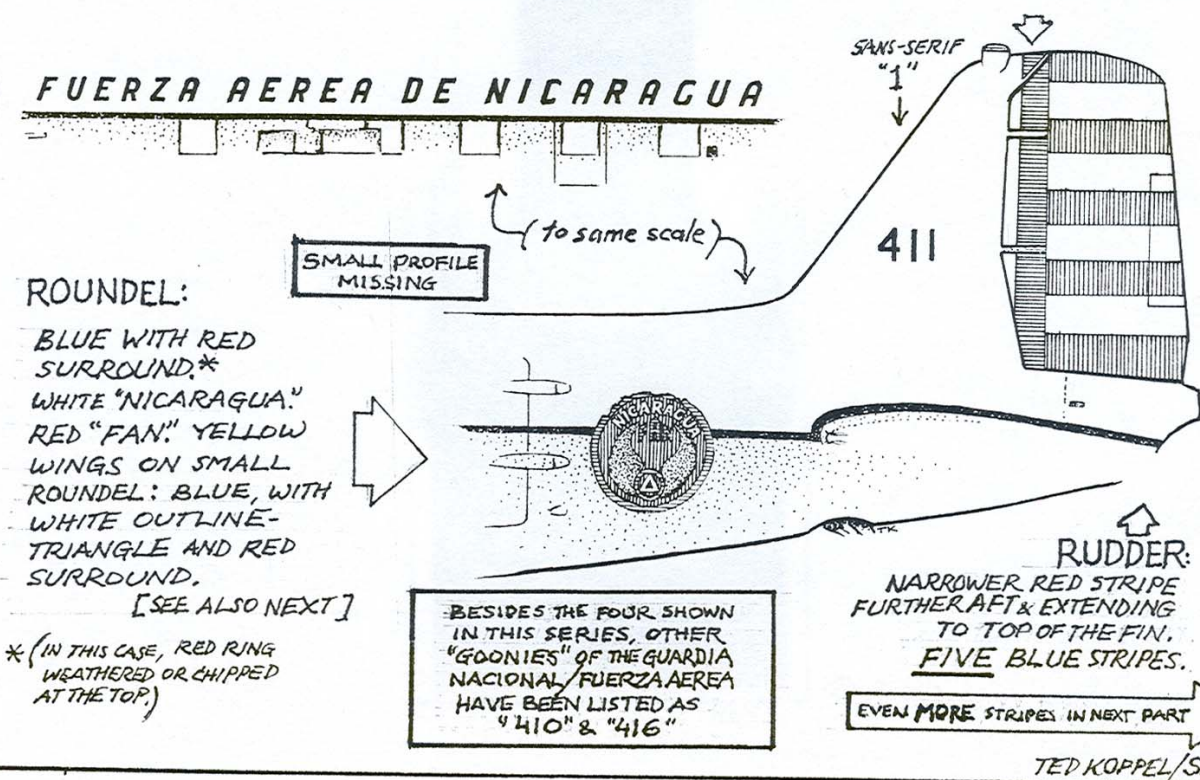 FUERZA AEREA DE NICARAGUA
SANS-SERIF
"1"
(to same scale)
411
SMALL PROFILE
MISSING
ROUNDEL:
BLUE WITH RED
SURROUND.*
WHITE "NICARAGUA."
RED "FAN." YELLOW
WINGS ON SMALL
ROUNDEL: BLUE, WITH
WHITE OUTLINE-
TRIANGLE AND RED
SURROUND.
[SEE ALSO NEXT]
* (IN THIS CASE, RED RING
WEATHERED OR CHIPPED
AT THE TOP.)
NICARAGUA
TK
BESIDES THE FOUR SHOWN
IN THIS SERIES, OTHER
"GOONIES" OF THE GUARDIA
NACIONAL/FUERZA AEREA
HAVE BEEN LISTED AS
"410" & "416"
RUDDER:
NARROWER RED STRIPE
FURTHER AFT & EXTENDING
TO TOP OF THE FIN.
FIVE BLUE STRIPES.
EVEN MORE STRIPES IN NEXT PART
TED KOPPEL/